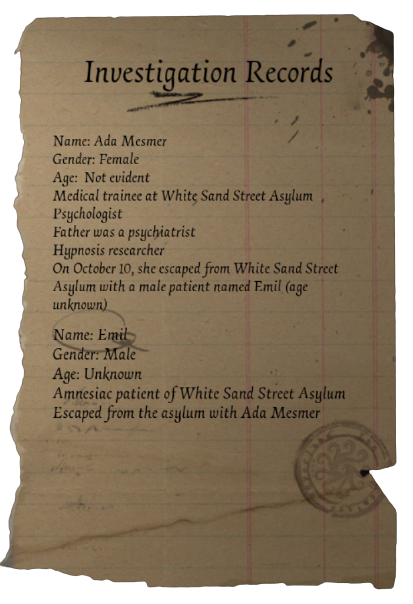 Investigation Records
Name: Ada Mesmer
Gender: Female
Age: Not evident
Medical trainee at White Sand Street Asylum
Psychologist
Father was a psychiatrist
Hypnosis researcher
On October 10, she escaped from White Sand Street
Asylum with a male patient named Emil (age
unknown)
Name: Emil
Gender: Male
Age: Unknown
Amnesiac patient of White Sand Street Asylum
Escaped from the asylum with Ada Mesmer